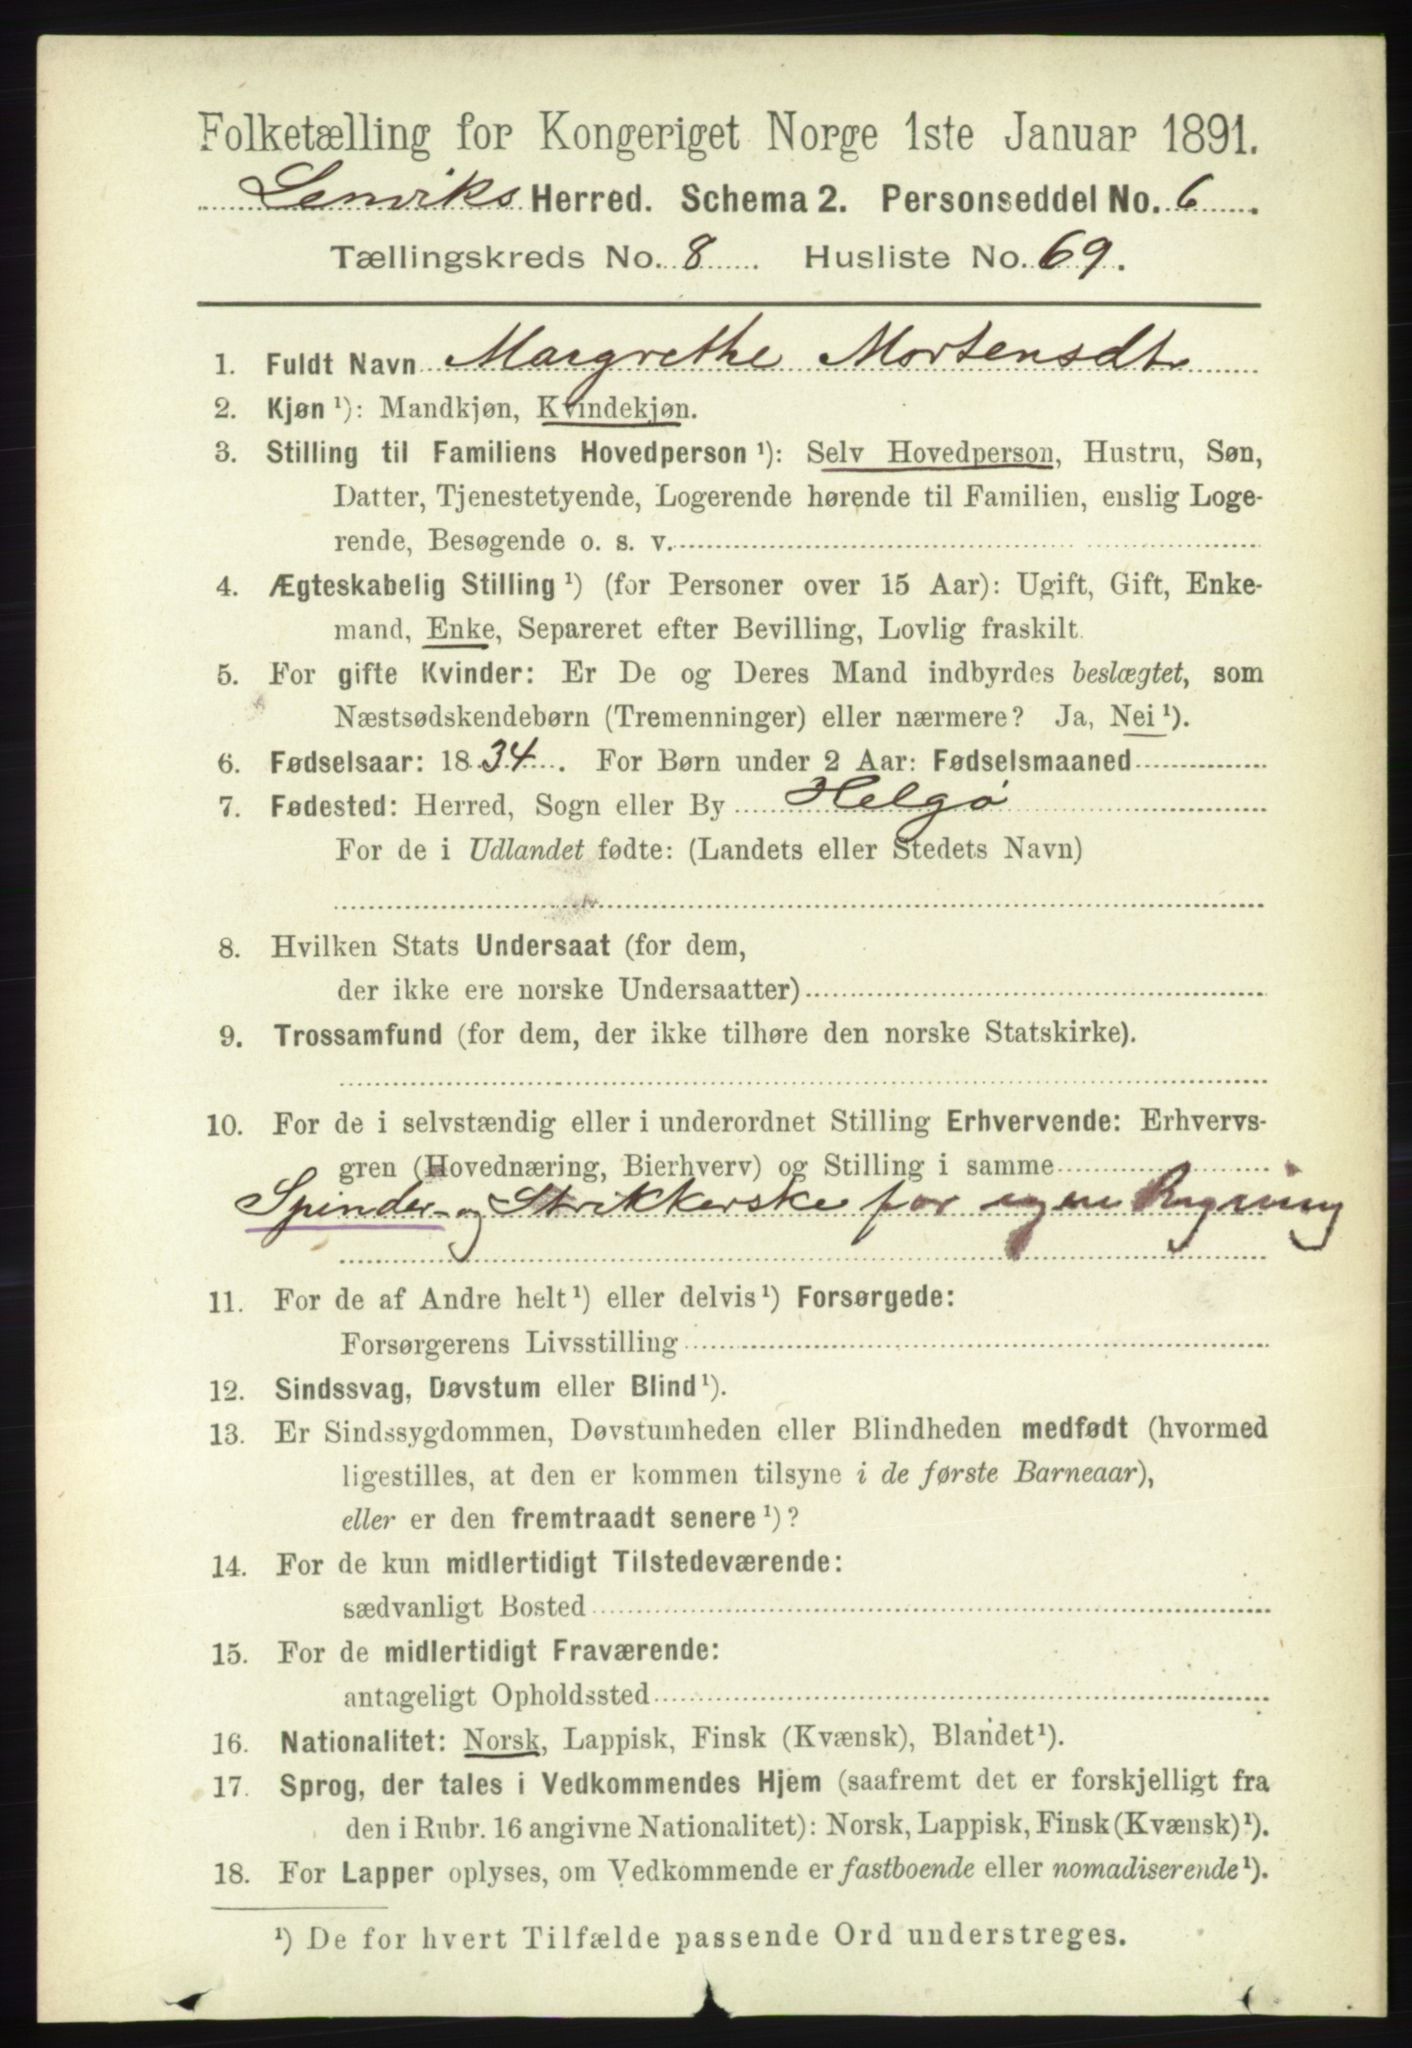 Folketælling for Kongeriget Norge 1ste Januar 1891.
Lenviks Herred. Schema 2. Personseddel No. 6.
Tællingskreds No. 8. Husliste No. 69.
1. Fuldt Navn Margrethe Mortensdt
2. Kjøn ¹): Mandkjøn, Kvindekjøn.
3. Stilling til Familiens Hovedperson ¹): Selv Hovedperson, Hustru, Søn,
Datter, Tjenestetyende, Logerende hørende til Familien, enslig Loge-
rende, Besøgende o. s. v.
4. Ægteskabelig Stilling ¹) (for Personer over 15 Aar): Ugift, Gift, Enke-
mand, Enke, Separeret efter Bevilling, Lovlig fraskilt.
5. For gifte Kvinder: Er De og Deres Mand indbyrdes beslægtet, som
Næstsødskendebørn (Tremenninger) eller nærmere? Ja, Nei ¹).
6. Fødselsaar: 1834. For Børn under 2 Aar: Fødselsmaaned
7. Fødested: Herred, Sogn eller By Helgø
For de i Udlandet fødte: (Landets eller Stedets Navn)
8. Hvilken Stats Undersaat (for dem,
der ikke ere norske Undersaatter)
9. Trossamfund (for dem, der ikke tilhøre den norske Statskirke).
10. For de i selvstændig eller i underordnet Stilling Erhvervende: Erhvervs-
gren (Hovednæring, Bierhverv) og Stilling i samme
Spinder- og Strikkerske for egen Regning
11. For de af Andre helt ¹) eller delvis ¹) Forsørgede:
Forsørgerens Livsstilling
12. Sindssvag, Døvstum eller Blind ¹).
13. Er Sindssygdommen, Døvstumheden eller Blindheden medfødt (hvormed
ligestilles, at den er kommen tilsyne i de første Barneaar),
eller er den fremtraadt senere ¹)?
14. For de kun midlertidigt Tilstedeværende:
sædvanligt Bosted
15. For de midlertidigt Fraværende:
antageligt Opholdssted
16. Nationalitet: Norsk, Lappisk, Finsk (Kvænsk), Blandet ¹).
17. Sprog, der tales i Vedkommendes Hjem (saafremt det er forskjelligt fra
den i Rubr. 16 angivne Nationalitet): Norsk, Lappisk, Finsk (Kvænsk) ¹).
18. For Lapper oplyses, om Vedkommende er fastboende eller nomadiserende ¹).
¹) De for hvert Tilfælde passende Ord understreges.